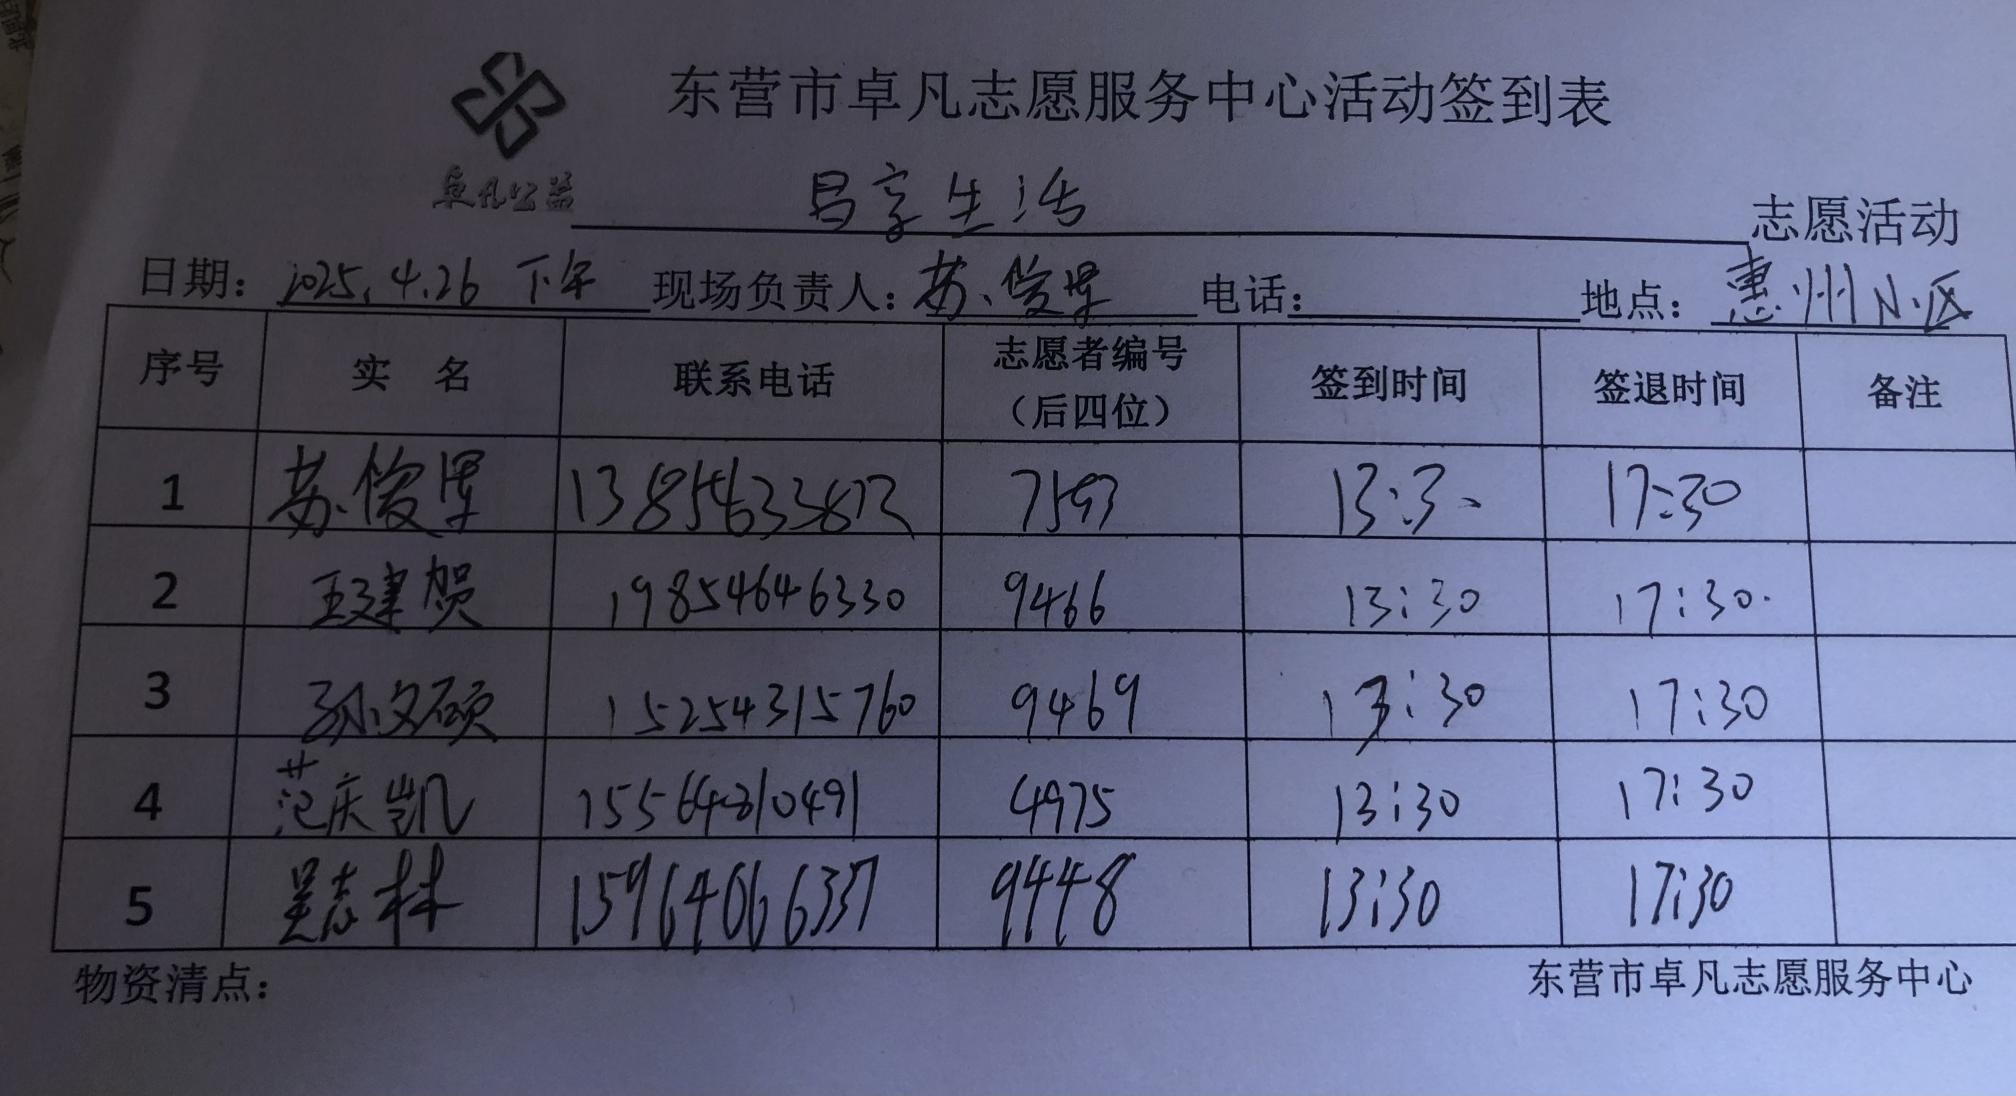 东营市卓凡志愿服务中心活动签到表
卓凡公益
易享生活 志愿活动
日期: 2025.4.26 下午 现场负责人: 苏俊 电话: 地点: 惠州小区
序号 实 名 联系电话 志愿者编号 (后四位) 签到时间 签退时间 备注
1 苏俊 7593 13:30 17:30
2 王建贺 19854646330 9466 13:30 17:30.
3 孙文硕 15254315760 9469 13:30 17:30
4 范庆凯 4975 13:30 17:30
5 吴志林 15964066337 9448 13:30 17:30
物资清点: 东营市卓凡志愿服务中心